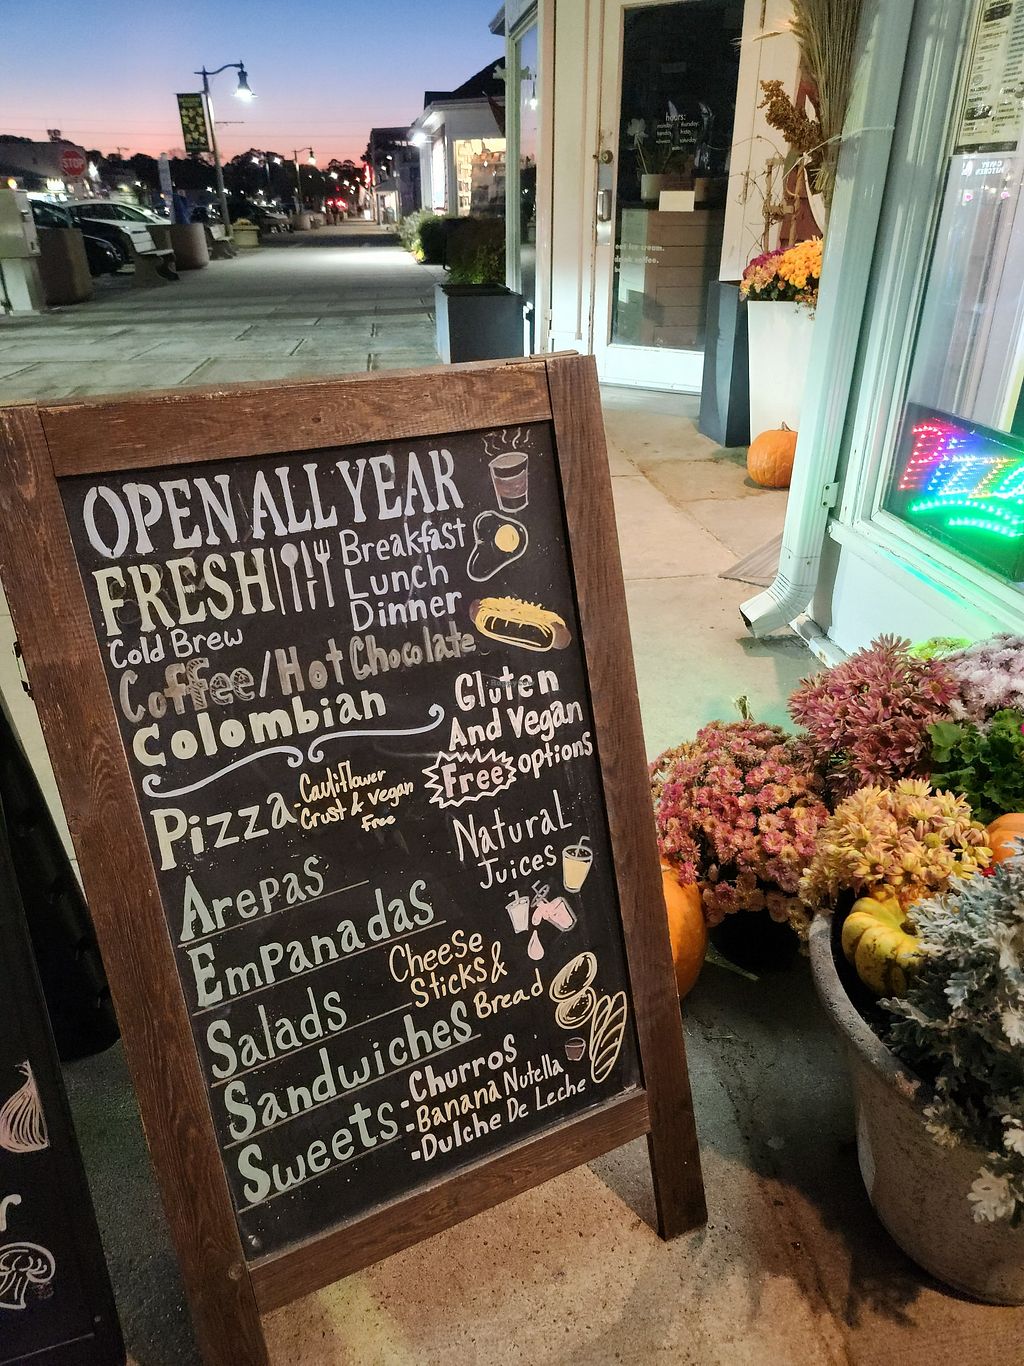 STOP
hours:
eat ice cream.
drink coffee.
OPEN ALL YEAR
FRESH
Breakfast
Lunch
Dinner
Cold Brew
Coffee/Hot Chocolate
Colombian
Gluten
And Vegan
Free options
Pizza-Cauliflower
Crust & Vegan
Free
Natural
Juices
Arepas
Empanadas
Cheese
Sticks &
Bread
Salads
Sandwiches
Sweets
-Churros
-Banana Nutella
-Dulche De Leche